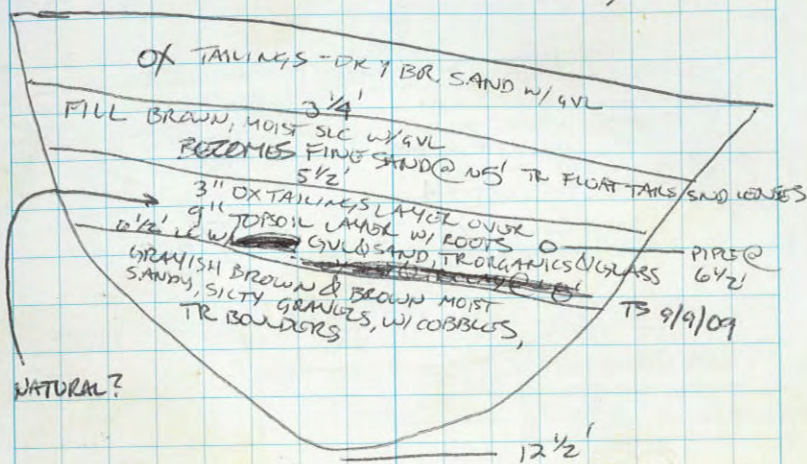 OX TAILINGS - DRY BR SAND W/ GVL
3 1/4'
FILL BROWN, MOIST SLC W/ GVL
BECOMES FINE SAND @ ~5' TR FLOAT TAILS SND LENSES
5 1/2'
3" OX TAILINGS LAYER OVER
9" TOPSOIL LAYER W/ ROOTS
PIPE @ 6 1/2'
6 1/2' W/ GVL & SAND, TR ORGANICS & GLASS
GRAYISH BROWN & BROWN MOIST
SANDY, SILTY GRAVELS, W/ COBBLES,
TR BOULDERS
TS 9/9/09
NATURAL?
12 1/2'